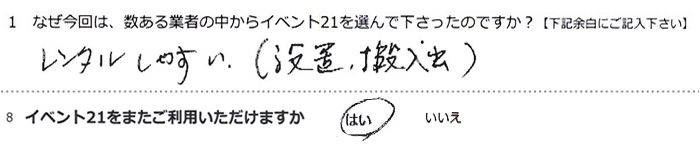 1 なぜ今回は、数ある業者の中からイベント21を選んで下さったのですか？【下記余白にご記入下さい】
レンタルしやすい.（設置,搬入出）
8 イベント21をまたご利用いただけますか はい いいえ